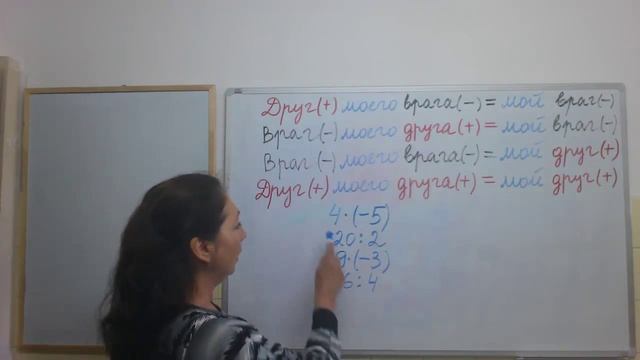 Друг(+) моего врага(-) = мой враг(-)
Враг(-) моего друга(+) = мой враг(-)
Враг(-) моего врага(-) = мой друг(+)
Друг(+) моего друга(+) = мой друг(+)
4·(-5)
20:2
9·(-3)
6:4